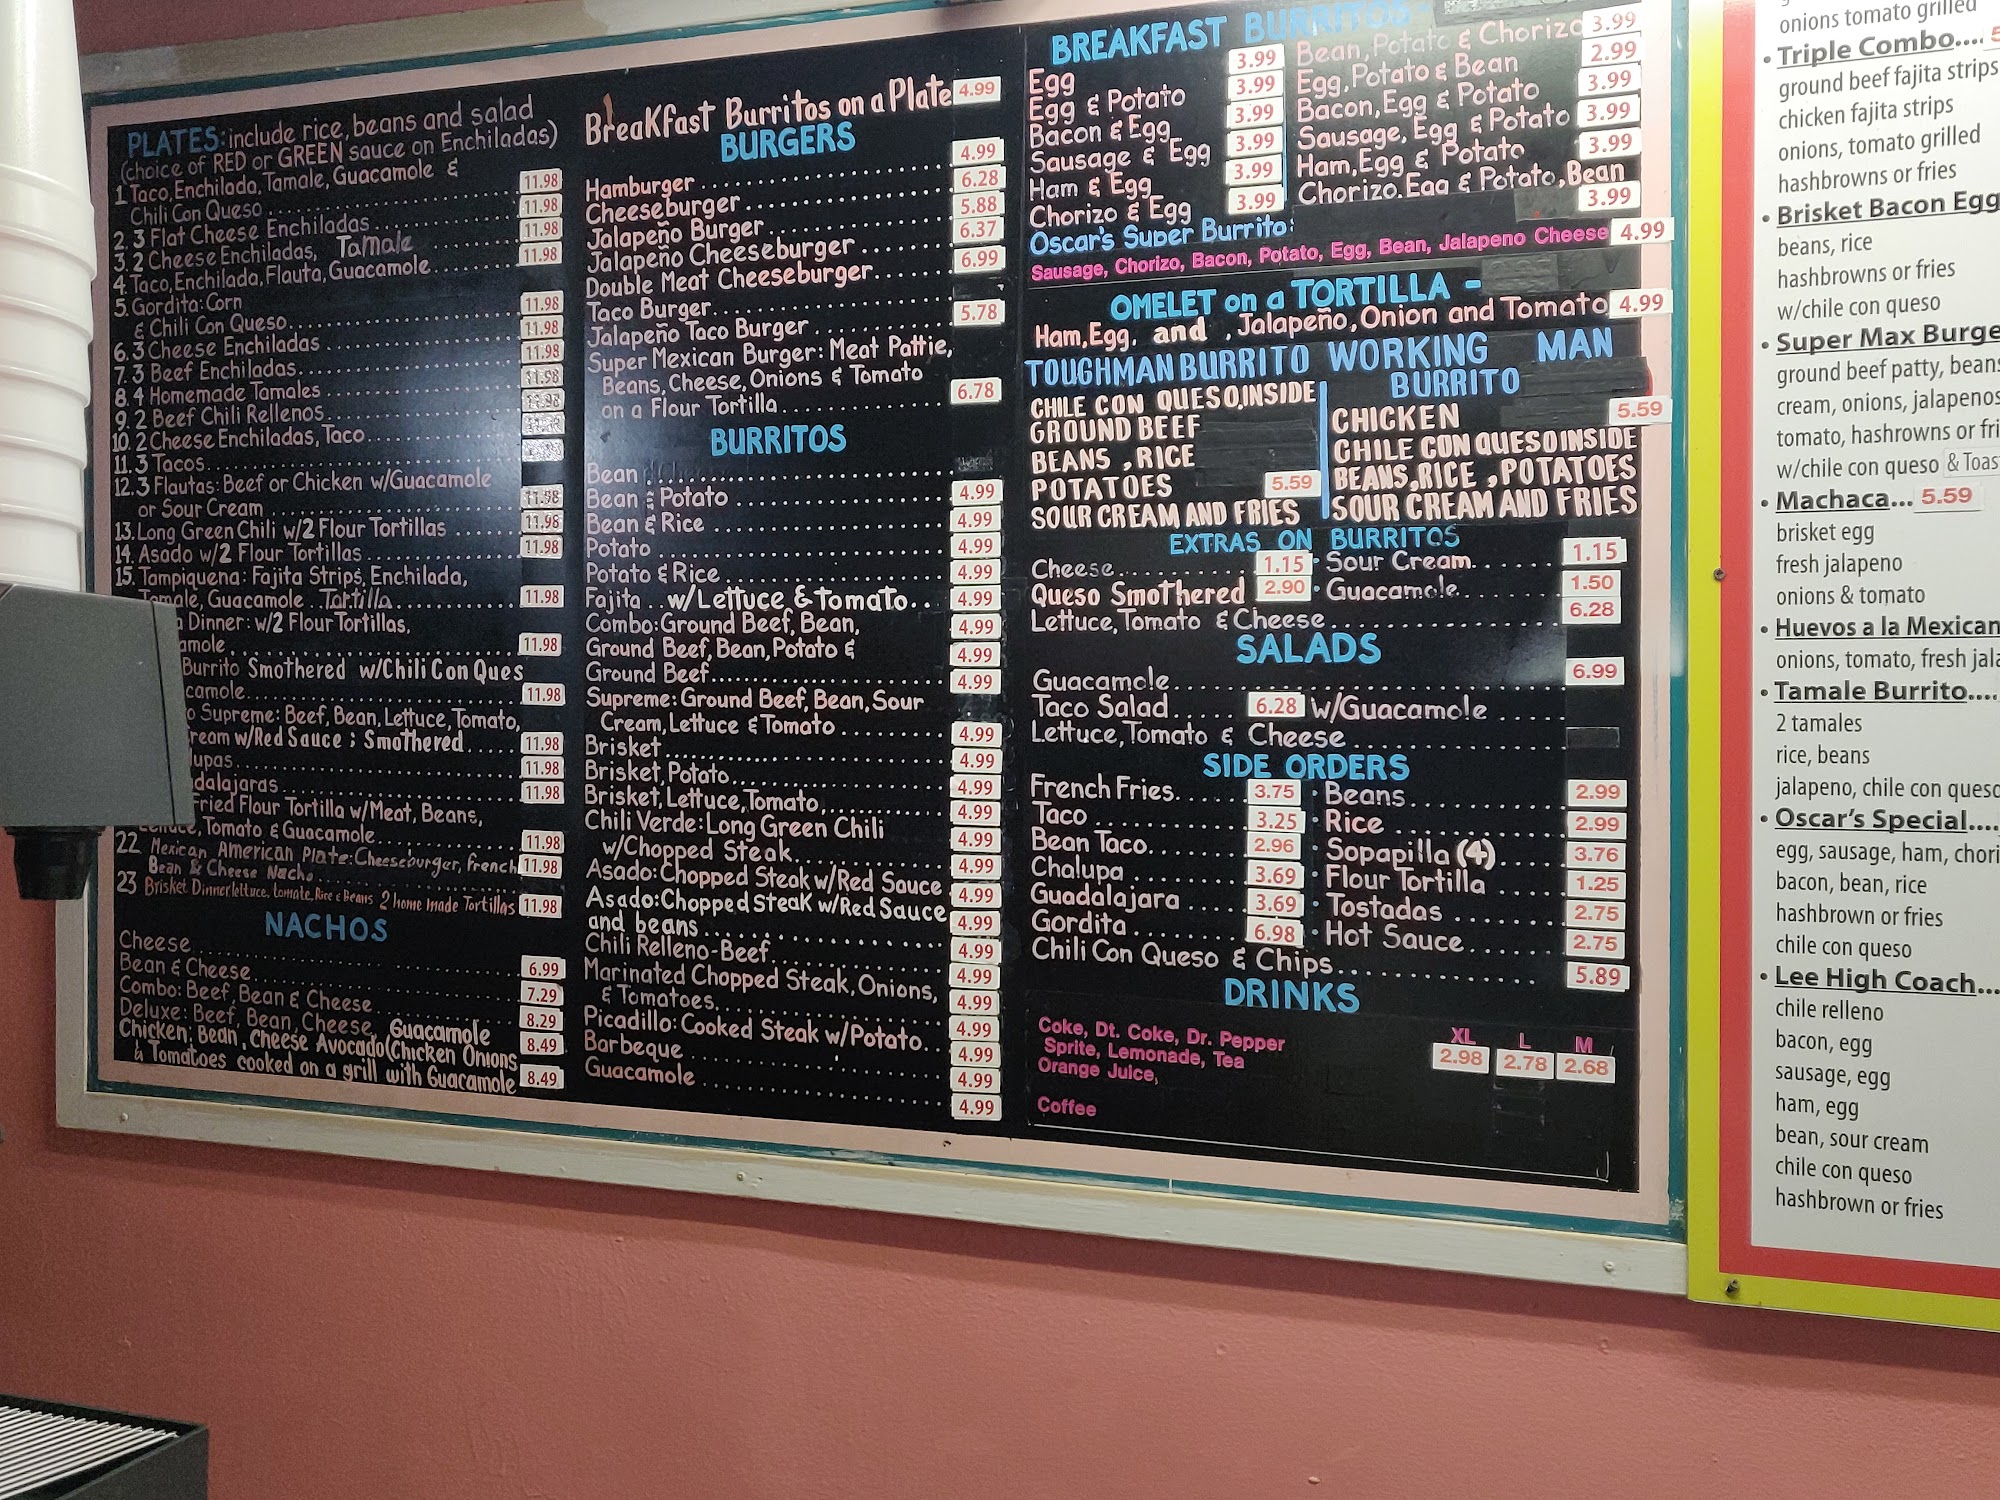 PLATES: include rice, beans and salad
(choice of RED or GREEN sauce on Enchiladas)
1 Taco, Enchilada, Tamale, Guacamole &
Chili Con Queso 11.98
2. 3 Flat Cheese Enchiladas 11.98
3. 2 Cheese Enchiladas, Tamale 11.98
4. Taco, Enchilada, Flauta, Guacamole 11.98
5. Gordita: Corn
& Chili Con Queso 11.98
6. 3 Cheese Enchiladas 11.98
7. 3 Beef Enchiladas 11.98
8. 4 Homemade Tamales 11.98
9. 2 Beef Chili Rellenos
10. 2 Cheese Enchiladas, Taco
11. 3 Tacos
12. 3 Flautas: Beef or Chicken w/Guacamole
or Sour Cream 11.98
13. Long Green Chili w/2 Flour Tortillas 11.98
14. Asado w/2 Flour Tortillas 11.98
15. Tampiquena: Fajita Strips, Enchilada,
Tamale, Guacamole Tortilla 11.98
Dinner: w/2 Flour Tortillas,
amole 11.98
Burrito Smothered w/Chili Con Ques
camole 11.98
o Supreme: Beef, Bean, Lettuce, Tomato,
ream w/Red Sauce ; Smothered 11.98
lupas 11.98
dalajaras 11.98
Fried Flour Tortilla w/Meat, Beans,
Lettuce, Tomato & Guacamole 11.98
22 Mexican American Plate: Cheeseburger, French 11.98
Bean & Cheese Nacho
23 Brisket Dinner, lettuce, tomato, Rice & Beans 2 home made Tortillas 11.98
NACHOS
Cheese 6.99
Bean & Cheese 7.29
Combo: Beef, Bean & Cheese 8.29
Deluxe: Beef, Bean, Cheese, Guacamole 8.49
Chicken: Bean, Cheese Avocado (Chicken Onions
& Tomatoes cooked on a grill with Guacamole 8.49
Breakfast Burritos on a Plate 4.99
BURGERS
Hamburger 4.99
Cheeseburger 6.28
Jalapeño Burger 5.88
Jalapeño Cheeseburger 6.37
Double Meat Cheeseburger 6.99
Taco Burger
Jalapeño Taco Burger 5.78
Super Mexican Burger: Meat Pattie,
Beans, Cheese, Onions & Tomato
on a Flour Tortilla 6.78
BURRITOS
Bean
Bean & Potato 4.99
Bean & Rice 4.99
Potato 4.99
Potato & Rice 4.99
Fajita w/Lettuce & Tomato 4.99
Combo: Ground Beef, Bean, 4.99
Ground Beef, Bean, Potato & 4.99
Ground Beef 4.99
Supreme: Ground Beef, Bean, Sour
Cream, Lettuce & Tomato 4.99
Brisket 4.99
Brisket, Potato 4.99
Brisket, Lettuce, Tomato, 4.99
Chili Verde: Long Green Chili 4.99
w/Chopped Steak 4.99
Asado: Chopped Steak w/Red Sauce 4.99
Asado: Chopped Steak w/Red Sauce 4.99
and beans 4.99
Chili Relleno-Beef 4.99
Marinated Chopped Steak, Onions,
& Tomatoes 4.99
Picadillo: Cooked Steak w/Potato 4.99
Barbeque 4.99
Guacamole 4.99
BREAKFAST BURRITOS -
Egg 3.99
Egg & Potato 3.99
Bacon & Egg 3.99
Sausage & Egg 3.99
Ham & Egg 3.99
Chorizo & Egg 3.99
Bean, Potato & Chorizo 3.99
Egg, Potato & Bean 2.99
Bacon, Egg & Potato 3.99
Sausage, Egg & Potato 3.99
Ham, Egg & Potato 3.99
Chorizo, Egg & Potato, Bean 3.99
Oscar's Super Burrito:
Sausage, Chorizo, Bacon, Potato, Egg, Bean, Jalapeno Cheese 4.99
OMELET on a TORTILLA -
Ham, Egg, and , Jalapeño, Onion and Tomato 4.99
TOUGHMAN BURRITO
CHILE CON QUESO, INSIDE
GROUND BEEF
BEANS , RICE
POTATOES 5.59
SOUR CREAM AND FRIES
WORKING MAN
BURRITO
CHICKEN 5.59
CHILE CON QUESO INSIDE
BEANS, RICE , POTATOES
SOUR CREAM AND FRIES
EXTRAS ON BURRITOS
Cheese 1.15 • Sour Cream 1.15
Queso Smothered 2.90 • Guacamole 1.50
Lettuce, Tomato & Cheese 6.28
SALADS
Guacamole 6.99
Taco Salad 6.28 w/Guacamole
Lettuce, Tomato & Cheese
SIDE ORDERS
French Fries 3.75 • Beans 2.99
Taco 3.25 • Rice 2.99
Bean Taco 2.96 • Sopapilla (4) 3.76
Chalupa 3.69 • Flour Tortilla 1.25
Guadalajara 3.69 • Tostadas 2.75
Gordita 6.98 • Hot Sauce 2.75
Chili Con Queso & Chips 5.89
DRINKS
XL L M
Coke, Dt. Coke, Dr. Pepper 2.98 2.78 2.68
Sprite, Lemonade, Tea
Orange Juice,
Coffee
onions tomato grilled
• Triple Combo....
ground beef fajita strips
chicken fajita strips
onions, tomato grilled
hashbrowns or fries
• Brisket Bacon Egg
beans, rice
hashbrowns or fries
w/chile con queso
• Super Max Burge
ground beef patty, beans
cream, onions, jalapenos
tomato, hashrowns or fri
w/chile con queso & Toas
• Machaca... 5.59
brisket egg
fresh jalapeno
onions & tomato
• Huevos a la Mexican
onions, tomato, fresh jala
• Tamale Burrito....
2 tamales
rice, beans
jalapeno, chile con queso
• Oscar's Special....
egg, sausage, ham, chori
bacon, bean, rice
hashbrown or fries
chile con queso
• Lee High Coach...
chile relleno
bacon, egg
sausage, egg
ham, egg
bean, sour cream
chile con queso
hashbrown or fries